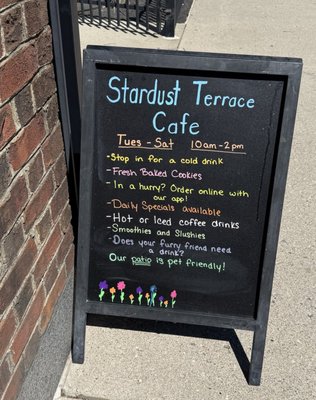 Stardust Terrace
Cafe
Tues - Sat 10am-2pm
-Stop in for a cold drink
-Fresh Baked Cookies
-In a hurry? Order online with
our app!
-Daily Specials available
-Hot or Iced coffee drinks
-Smoothies and Slushies
-Does your furry friend need
a drink?
Our patio is pet friendly!